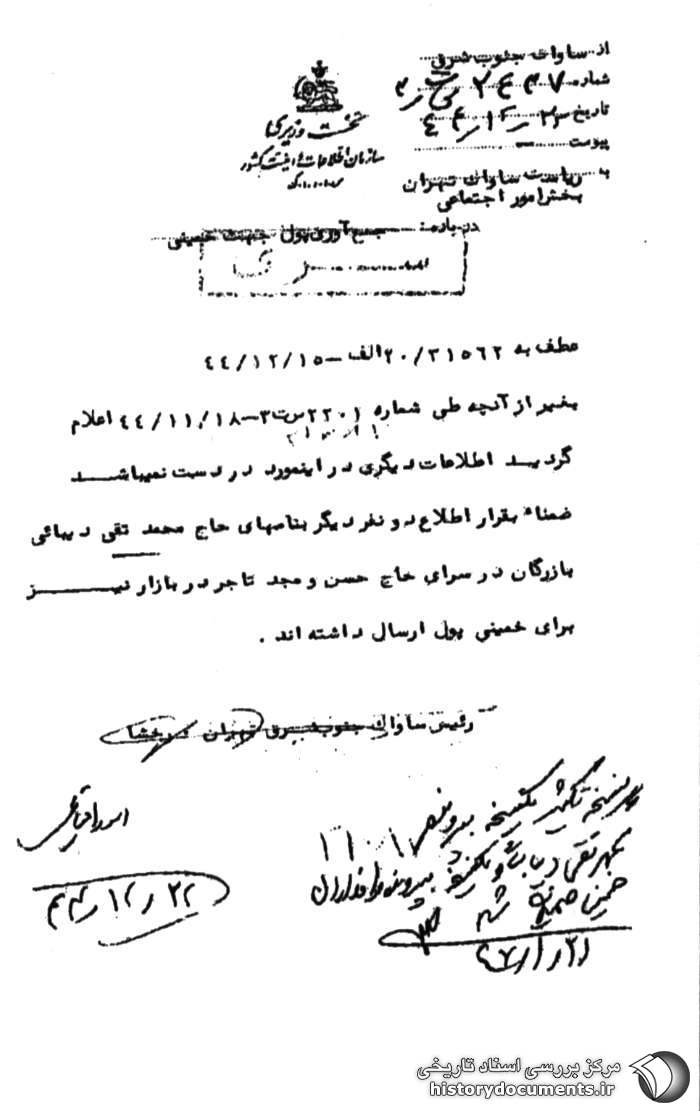 از ساواک جنوب شرق
شماره ۲۴۳۷
تاریخ ۲۳/۱۲/۴۴
پیوست
نخست وزیری
سازمان اطلاعات و امنیت کشور
س.ا.و.ا.ک
به ریاست ساواک تهران
بخش امور اجتماعی
درباره: جمع آوری پول جهت خمینی
عطف به ۲۰/۳۱۵۶۲الف - ۴۴/۱۲/۱۵
بغیر از آنچه طی شماره ۲۲۰۱س‌ت۳-۴۴/۱۱/۱۸ اعلام
گردید اطلاعات دیگری در اینمورد در دست نمیباشد
ضمناً بقرار اطلاع دو نفر دیگر بنامهای حاج محمد تقی دیبائی
بازرگان در سرای حاج حسن و مجد تاجر در بازار نیز
برای خمینی پول ارسال داشته اند .
رئیس ساواک جنوب شرق تهران
نسخه تکثیر یکنسخه بپرونده
۱۱۰۱۷
پرونده طرفداران
خمینی ضمیمه شود
۲۲/۱۲/۴۴
مرکز بررسی اسناد تاریخی
historydocuments.ir